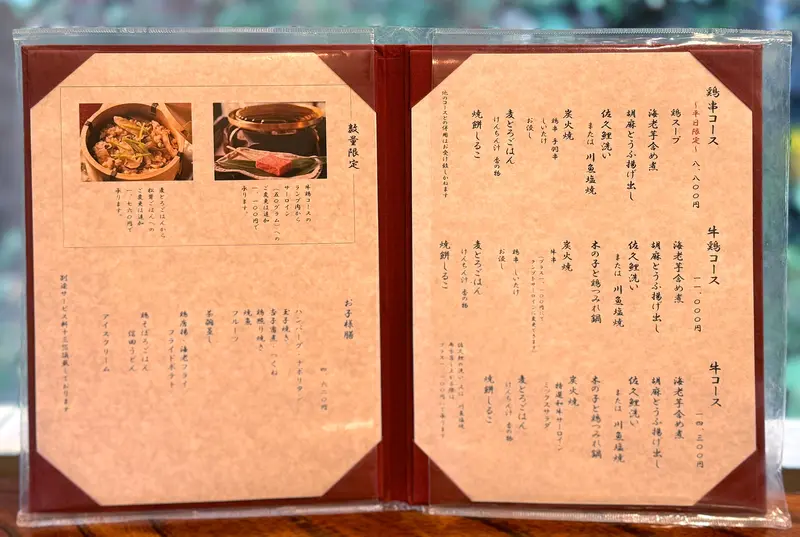 鶏串コース
～平日限定～ 八、八〇〇円
鶏スープ
海老芋含め煮
胡麻とうふ揚げ出し
佐久鯉洗い
または 川魚塩焼
炭火焼
鶏串 手羽串
しいたけ
お浸し
麦とろごはん
けんちん汁 香の物
焼餅しるこ
他のコースとの併用はお受け致しかねます
牛鶏コース
一一、〇〇〇円
海老芋含め煮
胡麻とうふ揚げ出し
佐久鯉洗い
または 川魚塩焼
木の子と鶏つみれ鍋
炭火焼
牛串
鶏串 しいたけ
お浸し
麦とろごはん
けんちん汁 香の物
焼餅しるこ
牛コース
一四、三〇〇円
海老芋含め煮
胡麻とうふ揚げ出し
佐久鯉洗い
または 川魚塩焼
木の子と鶏つみれ鍋
炭火焼
特選和牛サーロイン
ミックスサラダ
麦とろごはん
けんちん汁 香の物
焼餅しるこ
数量限定
牛鶏コースの
ランプ肉から
サーロイン
（五〇グラム）への
ご変更は追加
一、一〇〇円で
承ります。
麦とろごはんから
松茸ごはんへの
ご変更は追加
一、七六〇円で
承ります。
お子様膳
四、六二〇円
ハンバーグ ナポリタン
玉子焼き
杏子蜜煮 つくね
鶏照り焼き
焼魚
フルーツ
茶碗蒸し
鶏唐揚 海老フライ
フライドポテト
鶏そぼろごはん
信田うどん
アイスクリーム
別途サービス料十三％頂戴しております